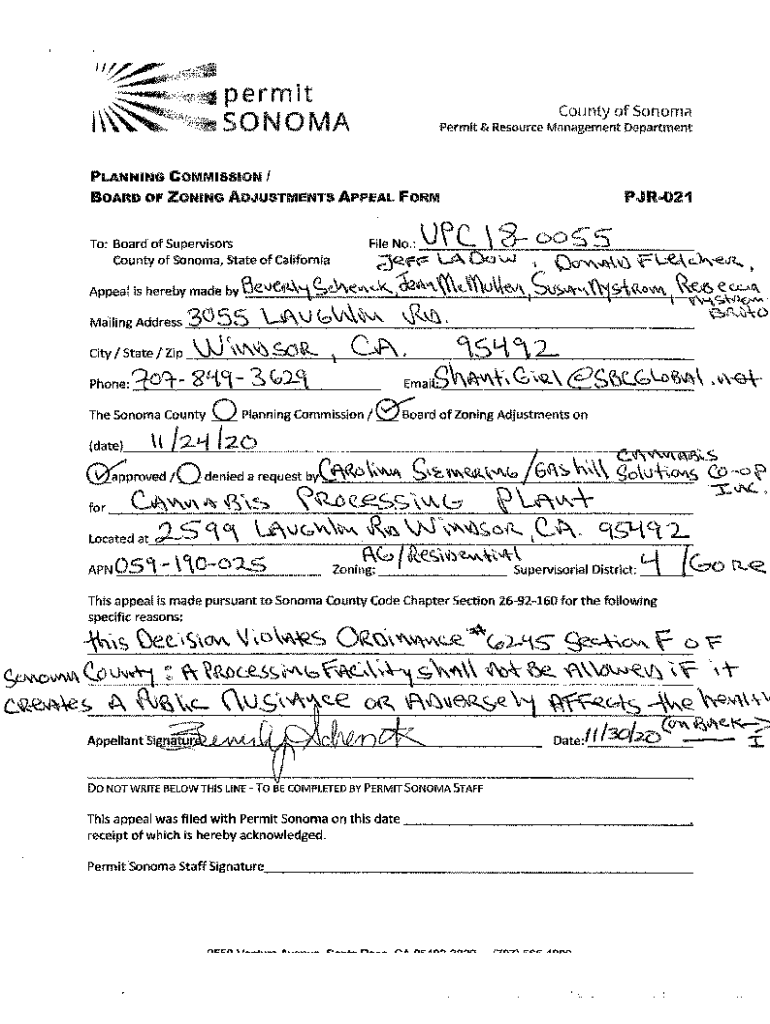 permit
SONOMA
County of Sonoma
Permit & Resource Management Department
PLANNING COMMISSION /
BOARD OF ZONING ADJUSTMENTS APPEAL FORM PJR-021
To: Board of Supervisors File No.: UPC18-0055
County of Sonoma, State of California JEFF LADOW, DONALD FLetcher,
Appeal is hereby made by Beverly Schenck, Jean McMullen, Susan Nystrom, Rebecca
Nystrom
Mailing Address 3055 LAUGHLIN RD.
City / State / Zip WINDSOR, CA. 95492
Phone: 707-849-3629 Email: ShantiGirl@SBCGlobal.net
The Sonoma County Planning Commission / Board of Zoning Adjustments on
(date) 11/24/20
CANNABIS
approved / denied a request by CAROlina Siemering/GAShill Solutions CO-OP
INC.
for CANNABis PROCESSING PLANT
Located at 2599 LAUGHLIN RD WINDSOR, CA. 95492
APN 059-190-025 Zoning: AG/Residential Supervisorial District: 4 /GORE
This appeal is made pursuant to Sonoma County Code Chapter Section 26-92-160 for the following
specific reasons:
this Decision Violates ORDINANCE #6245 Section F oF
Sonoma County: A PROCESSING FACility shall Not Be Allowed IF it
CREAtes A PuBlic NUSIANCE OR ADVERSely AFFects the health
(on BACK → I
Appellant Signature Beverly Schenck Date: 11/30/20
DO NOT WRITE BELOW THIS LINE - TO BE COMPLETED BY PERMIT SONOMA STAFF
This appeal was filed with Permit Sonoma on this date
receipt of which is hereby acknowledged.
Permit Sonoma Staff Signature